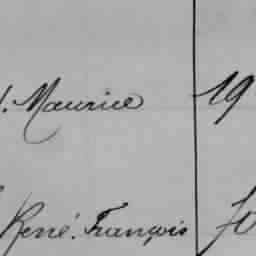 Maurice 19
René. François